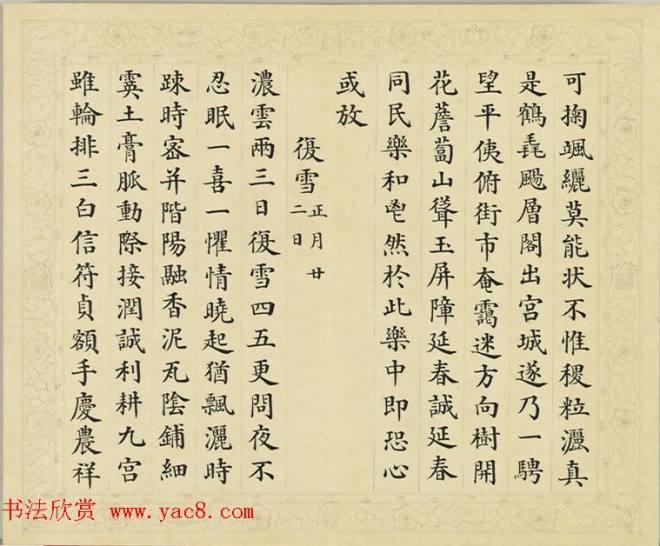 可掬颯纚莫能状不惟稷粒真
是鶴毳颺層閣出宫城遂乃一騁
望平俯街市奄靄迷方向樹開
花薝蔔山聳玉屏障延春誠延春
同民樂和鬯然於此樂中即恐心
或放
復雪
正月廿
二日
濃雲兩三日復雪四五更問夜不
忍眠一喜一懼情曉起猶飄灑時
踈時宻并階陽融香泥瓦陰鋪細
霙土膏脈動際接潤誠利耕九宫
雖輪排三白信符貞額手慶農祥
书法欣赏 www.yac8.com